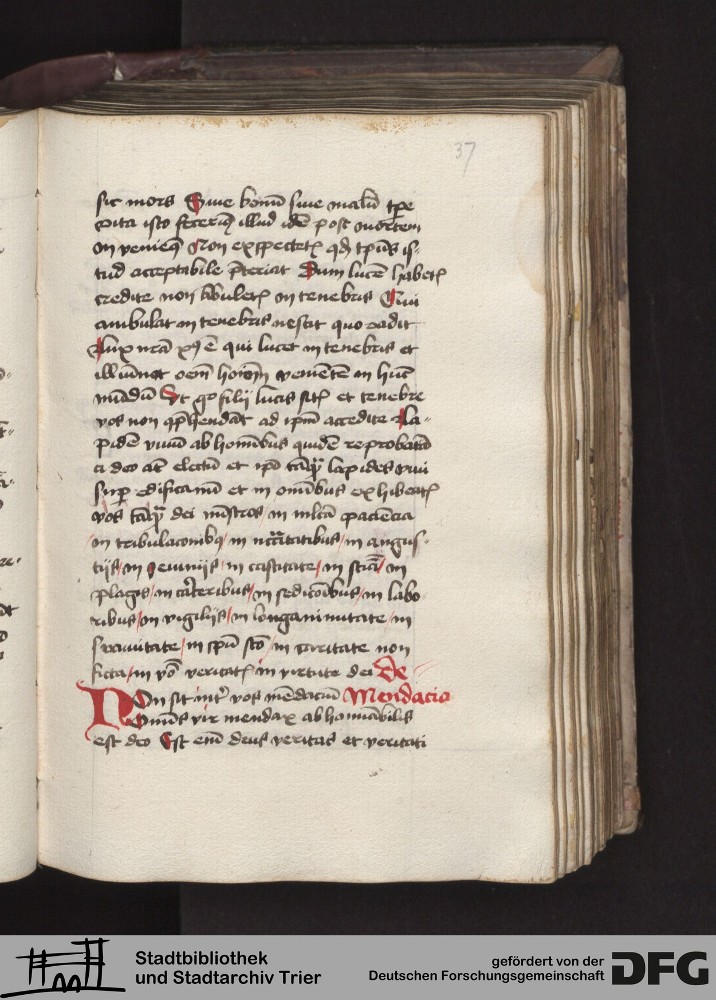 37
sic mors Siue bonū siue malū tp̄e
vita isto fecerim9 illud idē post mortem
inveniem9 Non exspectetis qd tp̄us is-
tud acceptabile p̄teriat Dum lucē habetis
credite non ābuletis in tenebris Qui
ambulat in tenebris nescit quo vadit
Lux nr̄a xp̄s ē qui lucet in tenebris et
illūinat oēm hoīem venientē in hūc
mūdū Vt g° filij lucis sitis et tenebre
vos non cp̄hendāt ad ip̄m accedite La-
pidē viuū ab homībus quidē reprobatū
a deo aūt electū et ip̄i tāq̄ lapides viui
superedificamī et in omībus exhibeatis
vos tāq̄ dei mīstros in mlta paciēcia
in tribulacōnibus in nēcitatibus in angus-
tijs in ieiunijs in castitate in sciā in
plagis in carceribus in sedicōibus in labo
ribus in vigilijs in longanimitate in
suauitate in spū scō in caritate non
ficta in vbō veritatis in virtute dei De
NOn sit intr̄ vos mēdacium Mendacio
Omnis vir mendax abhominabilis
est deo Est eni deus veritas et veritati
Stadtbibliothek
und Stadtarchiv Trier
gefördert von der
Deutschen Forschungsgemeinschaft
DFG